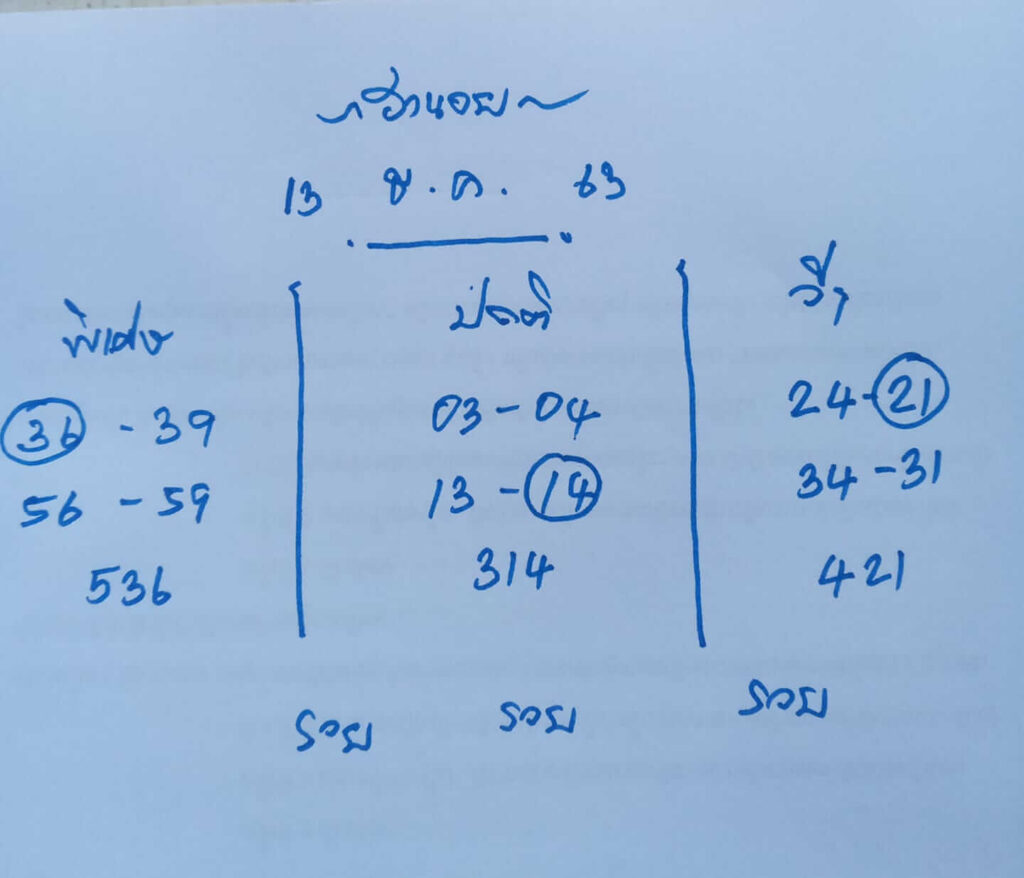 ~ฮานอย~
13 ม.ค. 63
พิเศษ
36 - 39
56 - 59
536
ปกติ
03 - 04
13 - 14
314
24 - 21
34 - 31
421
รวย รวย รวย